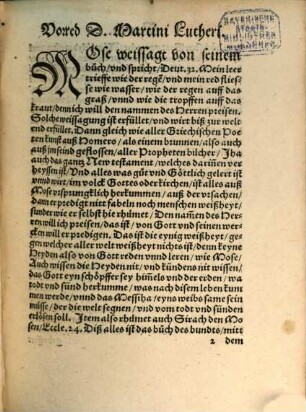 Vorred D. Martini Luthers.
MOse weissagt von seinem
büch/vnd spricht/Deut.32. Mein leer
trieffe wie der regē/vnd mein red fliesse
se wie wasser/wie der regen auff das
graß/vnnd wie die tropffen auff das
kraut/denn ich will den nammen des Herren preisen.
Solche weissagung ist erfüllet/vnd wirt biß zur welt
end erfüllet. Dann gleich wie aller Griechischen Poeten
kunst auß Homero/als einem brunnen/also auch
auß im seind geflossen/aller Propheten bücher/Jha
auch das gantz New testament/welches darīnen verheyssen
ist/Vnd alles was güt vnd Göttlich gelert ist
vnnd wirt/im volck Gottes oder kirchen/ist alles auß
Mose vrsprungklich herkummen/auß der vrsachen/
dann er predigt nit fabeln noch menschen weißheyt/
sunder wie er selbst hie rhümet/Den namen des Herren
will ich preisen/das ist/von Gott vnd seinen wercken
will er predigen. Das ist die eynig weißheyt/gegen
welcher aller welt weißheyt nichts ist/denn keyne
Heyden also von Gott reden vnnd leren/wie Mose/
Auch wissen die Heyden nit/vnd kündens nit wissen/
das Gott eyn schöpffer sey himels vnd der erden/wa
todt vnd sünd herkumme/was nach disem leben kummen
werde/vnnd das Messiha/eyns weibs same sein
müsse/der die welt segnen/vnd vom todt vnd sünden
erlösen soll. Jtem also rhümet auch Sirach den Mosen/
Eccle.24. Diß alles ist das büch des bundts/mitt
2 dem